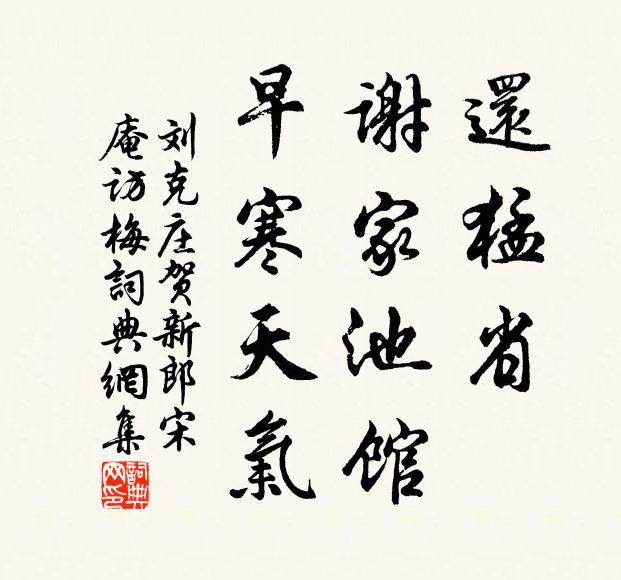 還猛省
謝家池館
早寒天氣
刘克庄贺新郎宋
庵访梅詞典網集
詞典网印